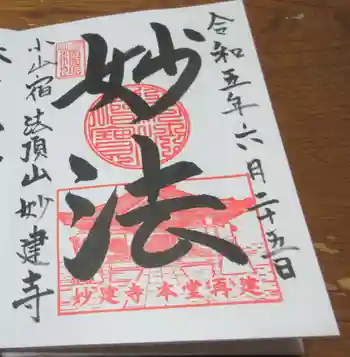 令和五年六月二十五日
妙法
小山宿法頂山妙建寺
妙建寺本堂再建